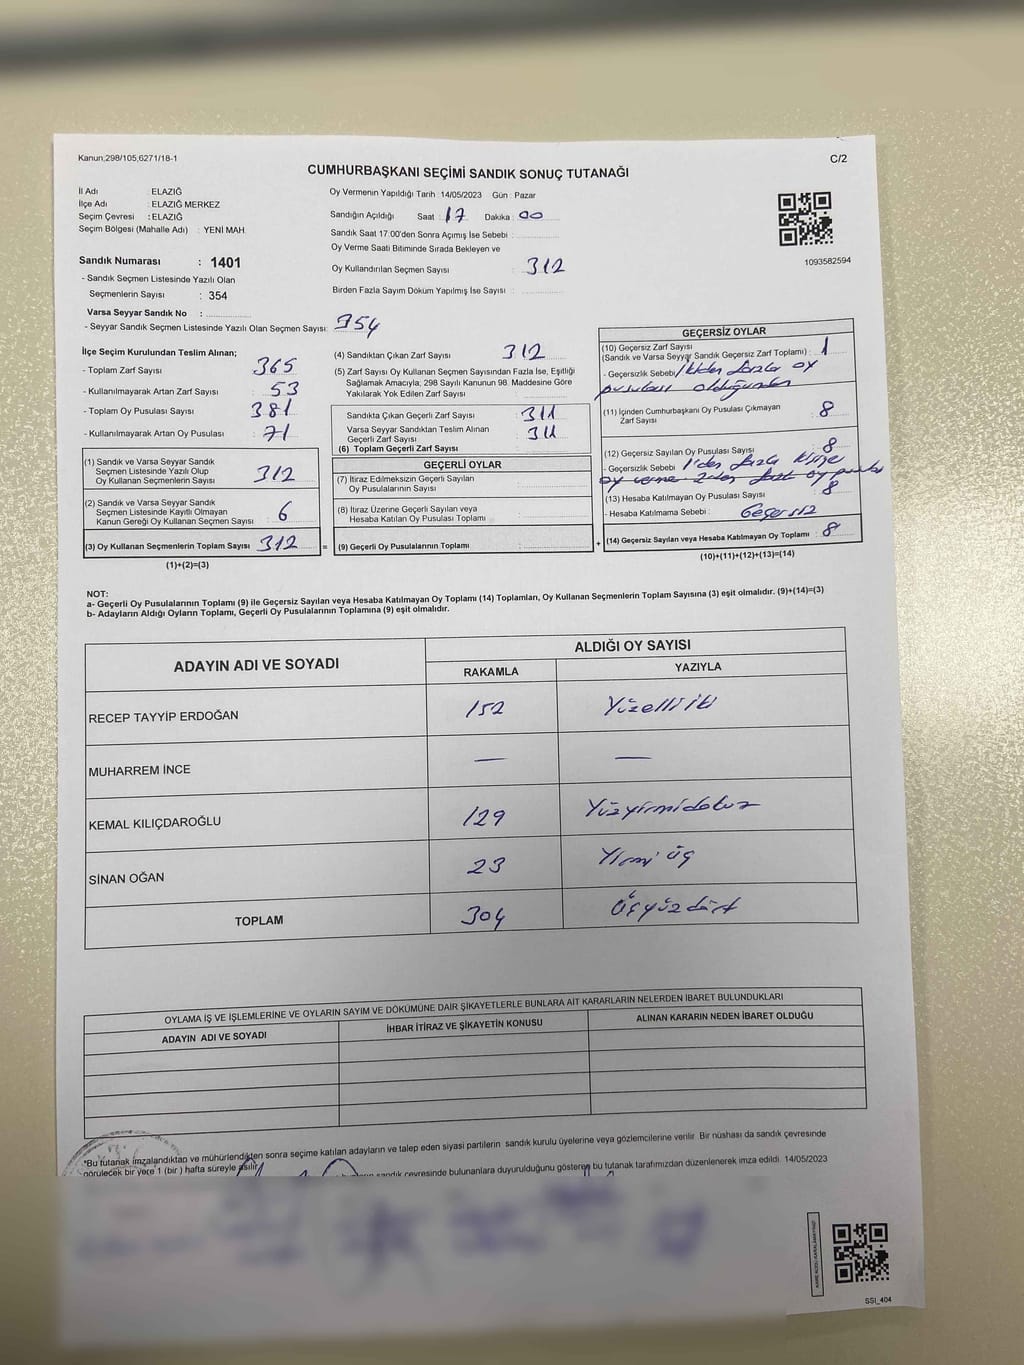 Kanun,298/105,6271/18-1
C/2
CUMHURBAŞKANI SEÇİMİ SANDIK SONUÇ TUTANAĞI
İl Adı : ELAZIĞ
İlçe Adı : ELAZIĞ MERKEZ
Seçim Çevresi : ELAZIĞ
Seçim Bölgesi (Mahalle Adı) : YENİ MAH.
Sandık Numarası : 1401
- Sandık Seçmen Listesinde Yazılı Olan
Seçmenlerin Sayısı : 354
Varsa Seyyar Sandık No :
- Seyyar Sandık Seçmen Listesinde Yazılı Olan Seçmen Sayısı: 354
Oy Vermenin Yapıldığı Tarih : 14/05/2023 Gün : Pazar
Sandığın Açıldığı Saat : 17 Dakika : 00
Sandık Saat 17.00'den Sonra Açımış İse Sebebi :
Oy Verme Saati Bitiminde Sırada Bekleyen ve
Oy Kullandırılan Seçmen Sayısı : 312
Birden Fazla Sayım Döküm Yapılmış İse Sayısı :
1093582594
İlçe Seçim Kurulundan Teslim Alınan;
- Toplam Zarf Sayısı : 365
- Kullanılmayarak Artan Zarf Sayısı : 53
- Toplam Oy Pusulası Sayısı : 381
- Kullanılmayarak Artan Oy Pusulası : 71
(1) Sandık ve Varsa Seyyar Sandık
Seçmen Listesinde Yazılı Olup
Oy Kullanan Seçmenlerin Sayısı : 312
(2) Sandık ve Varsa Seyyar Sandık
Seçmen Listesinde Kayıtlı Olmayan
Kanun Gereği Oy Kullanan Seçmen Sayısı : 6
(3) Oy Kullanan Seçmenlerin Toplam Sayısı : 312
(1)+(2)=(3)
(4) Sandıktan Çıkan Zarf Sayısı : 312
(5) Zarf Sayısı Oy Kullanan Seçmen Sayısından Fazla İse, Eşitliği
Sağlamak Amacıyla, 298 Sayılı Kanunun 98. Maddesine Göre
Yakılarak Yok Edilen Zarf Sayısı :
Sandıkta Çıkan Geçerli Zarf Sayısı : 311
Varsa Seyyar Sandıktan Teslim Alınan
Geçerli Zarf Sayısı : 311
(6) Toplam Geçerli Zarf Sayısı :
GEÇERLİ OYLAR
(7) İtiraz Edilmeksizin Geçerli Sayılan
Oy Pusulalarının Sayısı :
(8) İtiraz Üzerine Geçerli Sayılan veya
Hesaba Katılan Oy Pusulası Toplamı :
= (9) Geçerli Oy Pusulalarının Toplamı : +
GEÇERSİZ OYLAR
(10) Geçersiz Zarf Sayısı
(Sandık ve Varsa Seyyar Sandık Geçersiz Zarf Toplamı) : 1
- Geçersizlik Sebebi : 1'den fazla oy
pusulası olduğundan
(11) İçinden Cumhurbaşkanı Oy Pusulası Çıkmayan
Zarf Sayısı : 8
(12) Geçersiz Sayılan Oy Pusulası Sayısı : 8
- Geçersizlik Sebebi : 1'den fazla kişiye
oy verme oy pusulası
(13) Hesaba Katılmayan Oy Pusulası Sayısı : 8
- Hesaba Katılmama Sebebi : Geçersiz
(14) Geçersiz Sayılan veya Hesaba Katılmayan Oy Toplamı : 8
(10)+(11)+(12)+(13)=(14)
NOT:
a- Geçerli Oy Pusulalarının Toplamı (9) ile Geçersiz Sayılan veya Hesaba Katılmayan Oy Toplamı (14) Toplamları, Oy Kullanan Seçmenlerin Toplam Sayısına (3) eşit olmalıdır. (9)+(14)=(3)
b- Adayların Aldığı Oyların Toplamı, Geçerli Oy Pusulalarının Toplamına (9) eşit olmalıdır.
ADAYIN ADI VE SOYADI
ALDIĞI OY SAYISI
RAKAMLA YAZIYLA
RECEP TAYYİP ERDOĞAN 152 Yüzelliiki
MUHARREM İNCE — —
KEMAL KILIÇDAROĞLU 129 Yüzyirmidokuz
SİNAN OĞAN 23 Yirmi üç
TOPLAM 304 Üçyüzdört
OYLAMA İŞ VE İŞLEMLERİNE VE OYLARIN SAYIM VE DÖKÜMÜNE DAİR ŞİKAYETLERLE BUNLARA AİT KARARLARIN NELERDEN İBARET BULUNDUKLARI
ADAYIN ADI VE SOYADI İHBAR İTİRAZ VE ŞİKAYETİN KONUSU ALINAN KARARIN NEDEN İBARET OLDUĞU
*Bu tutanak imzalandıktan ve mühürlendikten sonra seçime katılan adayların ve talep eden siyasi partilerin sandık kurulu üyelerine veya gözlemcilerine verilir. Bir nüshası da sandık çevresinde
görülecek bir yere 1 (bir ) hafta süreyle asılır.
sandık çevresinde bulunanlara duyurulduğunu gösteren bu tutanak tarafımızdan düzenlenerek imza edildi. 14/05/2023
SSI_404